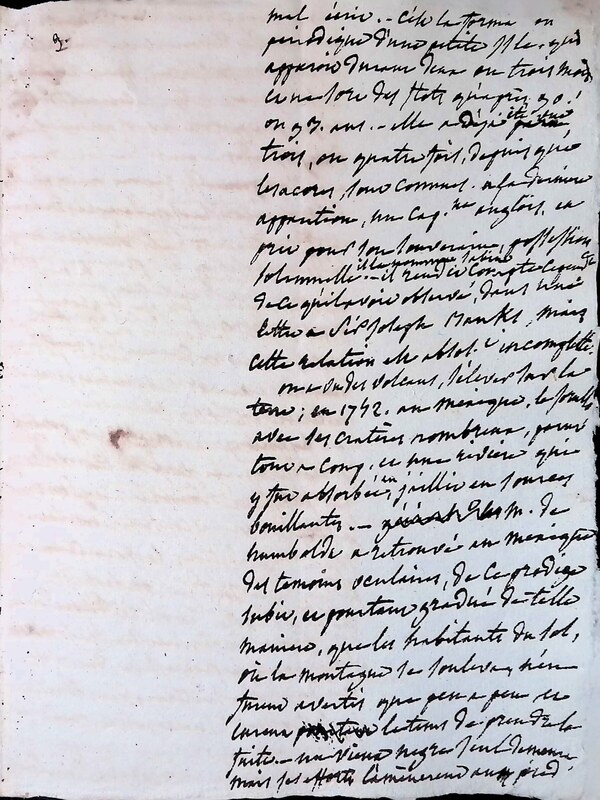 9.
mal écrit. - C'est la formation
periodique d'une petite isle, qui
apparoit durant deux ou trois mois
et ne sort des flots qu'après 90.
ou 93. ans. - elle a deja été vue
trois, ou quatre fois, depuis que
les acores, sont connues. a sa derniere
apparition, un cap.ne anglois, en
prit pour son souverain, possession
solemnelle. il la nomma Sabrina - il rendit compte
de ce qu'il avoit observé, dans une
lettre a Sir Joseph Banks, mais
cette relation est absol.t incomplette.
on a vu des volcans, s'élever sur la
terre; en 1742. au mexique, le
avec ses cratères nombreux, parut
tout a coup. et une riviere qui
y fut absorbée, en jaillit en sources
bouillantes. - M. de
humbolde a retrouvé au mexique
des temoins oculaires, de ce prodige
subit, et pourtant gradué de telle
maniere, que les habitants du sol,
où la montagne se souleva, n'en
furent avertis que peu a peu et
eurent le tems de prendre la
fuite. - un vieux negre seul demeura
mais ses efforts l'amenerent au pied